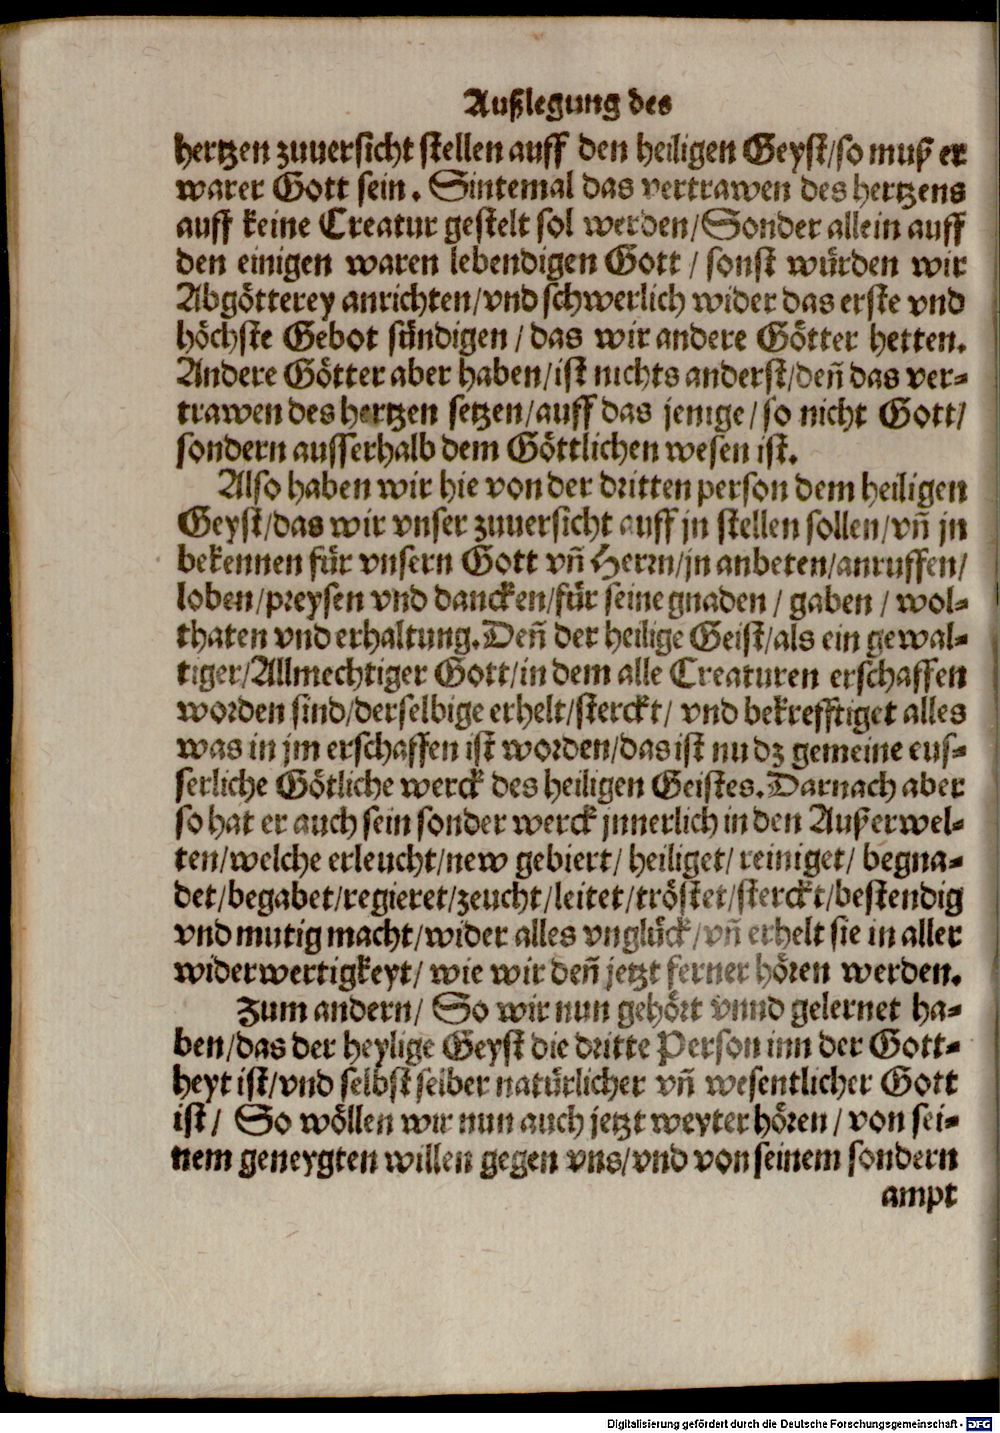 Außlegung des
hertzen zuuersicht stellen auff den heiligen Geyst/so muß er
warer Gott sein. Sintemal das vertrawen des hertzens
auff keine Creatur gestelt sol werden/Sonder allein auff
den einigen waren lebendigen Gott / sonst würden wir
Abgötterey anrichten/vnd schwerlich wider das erste vnd
höchste Gebot sündigen / das wir andere Götter hetten.
Andere Götter aber haben/ist nichts anderst/deñ das ver-
trawen des hertzen setzen/auff das jenige / so nicht Gott/
sondern ausserhalb dem Göttlichen wesen ist.
Also haben wir hie von der dritten person dem heiligen
Geyst/das wir vnser zuuersicht auff jn stellen sollen/vñ jn
bekennen für vnsern Gott vñ Herrn/jn anbeten/anruffen/
loben/preysen vnd dancken/für seine gnaden / gaben / wol-
thaten vnd erhaltung. Deñ der heilige Geist/als ein gewal-
tiger/Allmechtiger Gott/in dem alle Creaturen erschaffen
worden sind/derselbige erhelt/sterckt/ vnd bekrefftiget alles
was in jm erschaffen ist worden/das ist nu dz gemeine eus-
serliche Götliche werck des heiligen Geistes. Darnach aber
so hat er auch sein sonder werck jnnerlich in den Außerwel-
ten/welche erleucht/new gebiert/ heiliget/ reiniget/ begna-
det/begabet/regieret/zeucht/leitet/tröstet/sterckt/bestendig
vnd mutig macht/wider alles vnglück/vñ erhelt sie in aller
widerwertigkeyt/ wie wir deñ jetzt ferner hören werden.
Zum andern/ So wir nun gehört vnnd gelernet ha-
ben/das der heylige Geyst die dritte Person inn der Gott-
heyt ist/vnd selbst selber natürlicher vñ wesentlicher Gott
ist/ So wöllen wir nun auch jetzt weyter hören / von sei-
nem geneygten willen gegen vns/vnd von seinem sondern
ampt
Digitalisierung gefördert durch die Deutsche Forschungsgemeinschaft - DFG